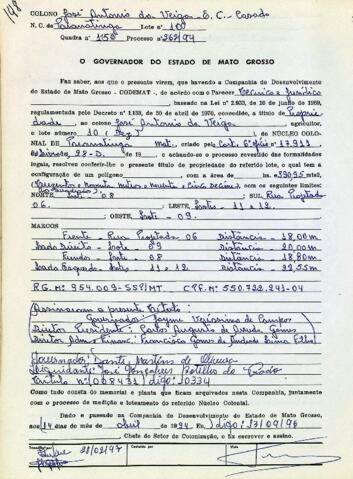 148
COLONO José Antonio da Veiga - E. C. - Casado
N. C. de Paranatinga Lote n° 10
Quadra n° 158 Processo n° 362/94
O GOVERNADOR DO ESTADO DE MATO GROSSO
Faz saber, aos que o presente virem, que havendo a Companhia de Desenvolvimento
do Estado de Mato Grosso - CODEMAT -, de acôrdo com o Parecer Técnico e Jurídico
baseada na Lei n° 2.933, de 26 de junho de 1969,
regulamentada pelo Decreto n° 1.138, de 30 de abril de 1970, concedido, a título de
ao colono José Antonio da Veiga, agricultor,
o lote número 10 (Dez) de NÚCLEO COLO-
NIAL DE Paranatinga Mat. criado pelo Cert. 6º Ofício nº 17.911
de 19 , e achando-se o processo revestido das formalidades
legais, resolven conferir-lhe o presente título de propriedade do referido lote, o qual tem a
configuração de um polígono com a área de m².
, com os seguintes limites:
NORTE, Lote 08 SUL, Rua Projetada
06. LESTE, Lotes 11 e 12
; OESTE, Lote 09.
MARCOS
Frente Rua Projetada 06 Distância - 18,00m
Lado Direito - Lote 09 Distância - 20,00m
Fundos - Lote 08 Distância - 18,80m
Lado Esquerdo - Lotes 11 e 12 Distância - 22,55m
RG. nº 954.009-SSP/MT - CPF. nº 550.722.241-04
Assinaram o presente Título:
Governador: Jayme Veríssimo de Campos
Diretor Presidente: Carlos Augusto de Arruda Gomes
Diretor Adm. e Financ: Francisco Gomes de Andrade Lima Filho
Governador: Dante Martins de Oliveira
Liquidante: José Gonçalves Botelho do Prado
Título nº 008431 / digo: 10334
Como tudo consta do memorial e planta que ficam arquivados nesta Companhia, juntamente
com o processo de medição e loteamento do referido Núcleo Colonial.
Dado e passado na Companhia de Desenvolvimento do Estado de Mato Grosso,
aos 14 dias do mês de abril de 1994 / digo: 13/09/96
, Chefe do Setor de Colonização, o fiz escrever e assino.
Transcrito por
28/02/97
Conferido por
Visto